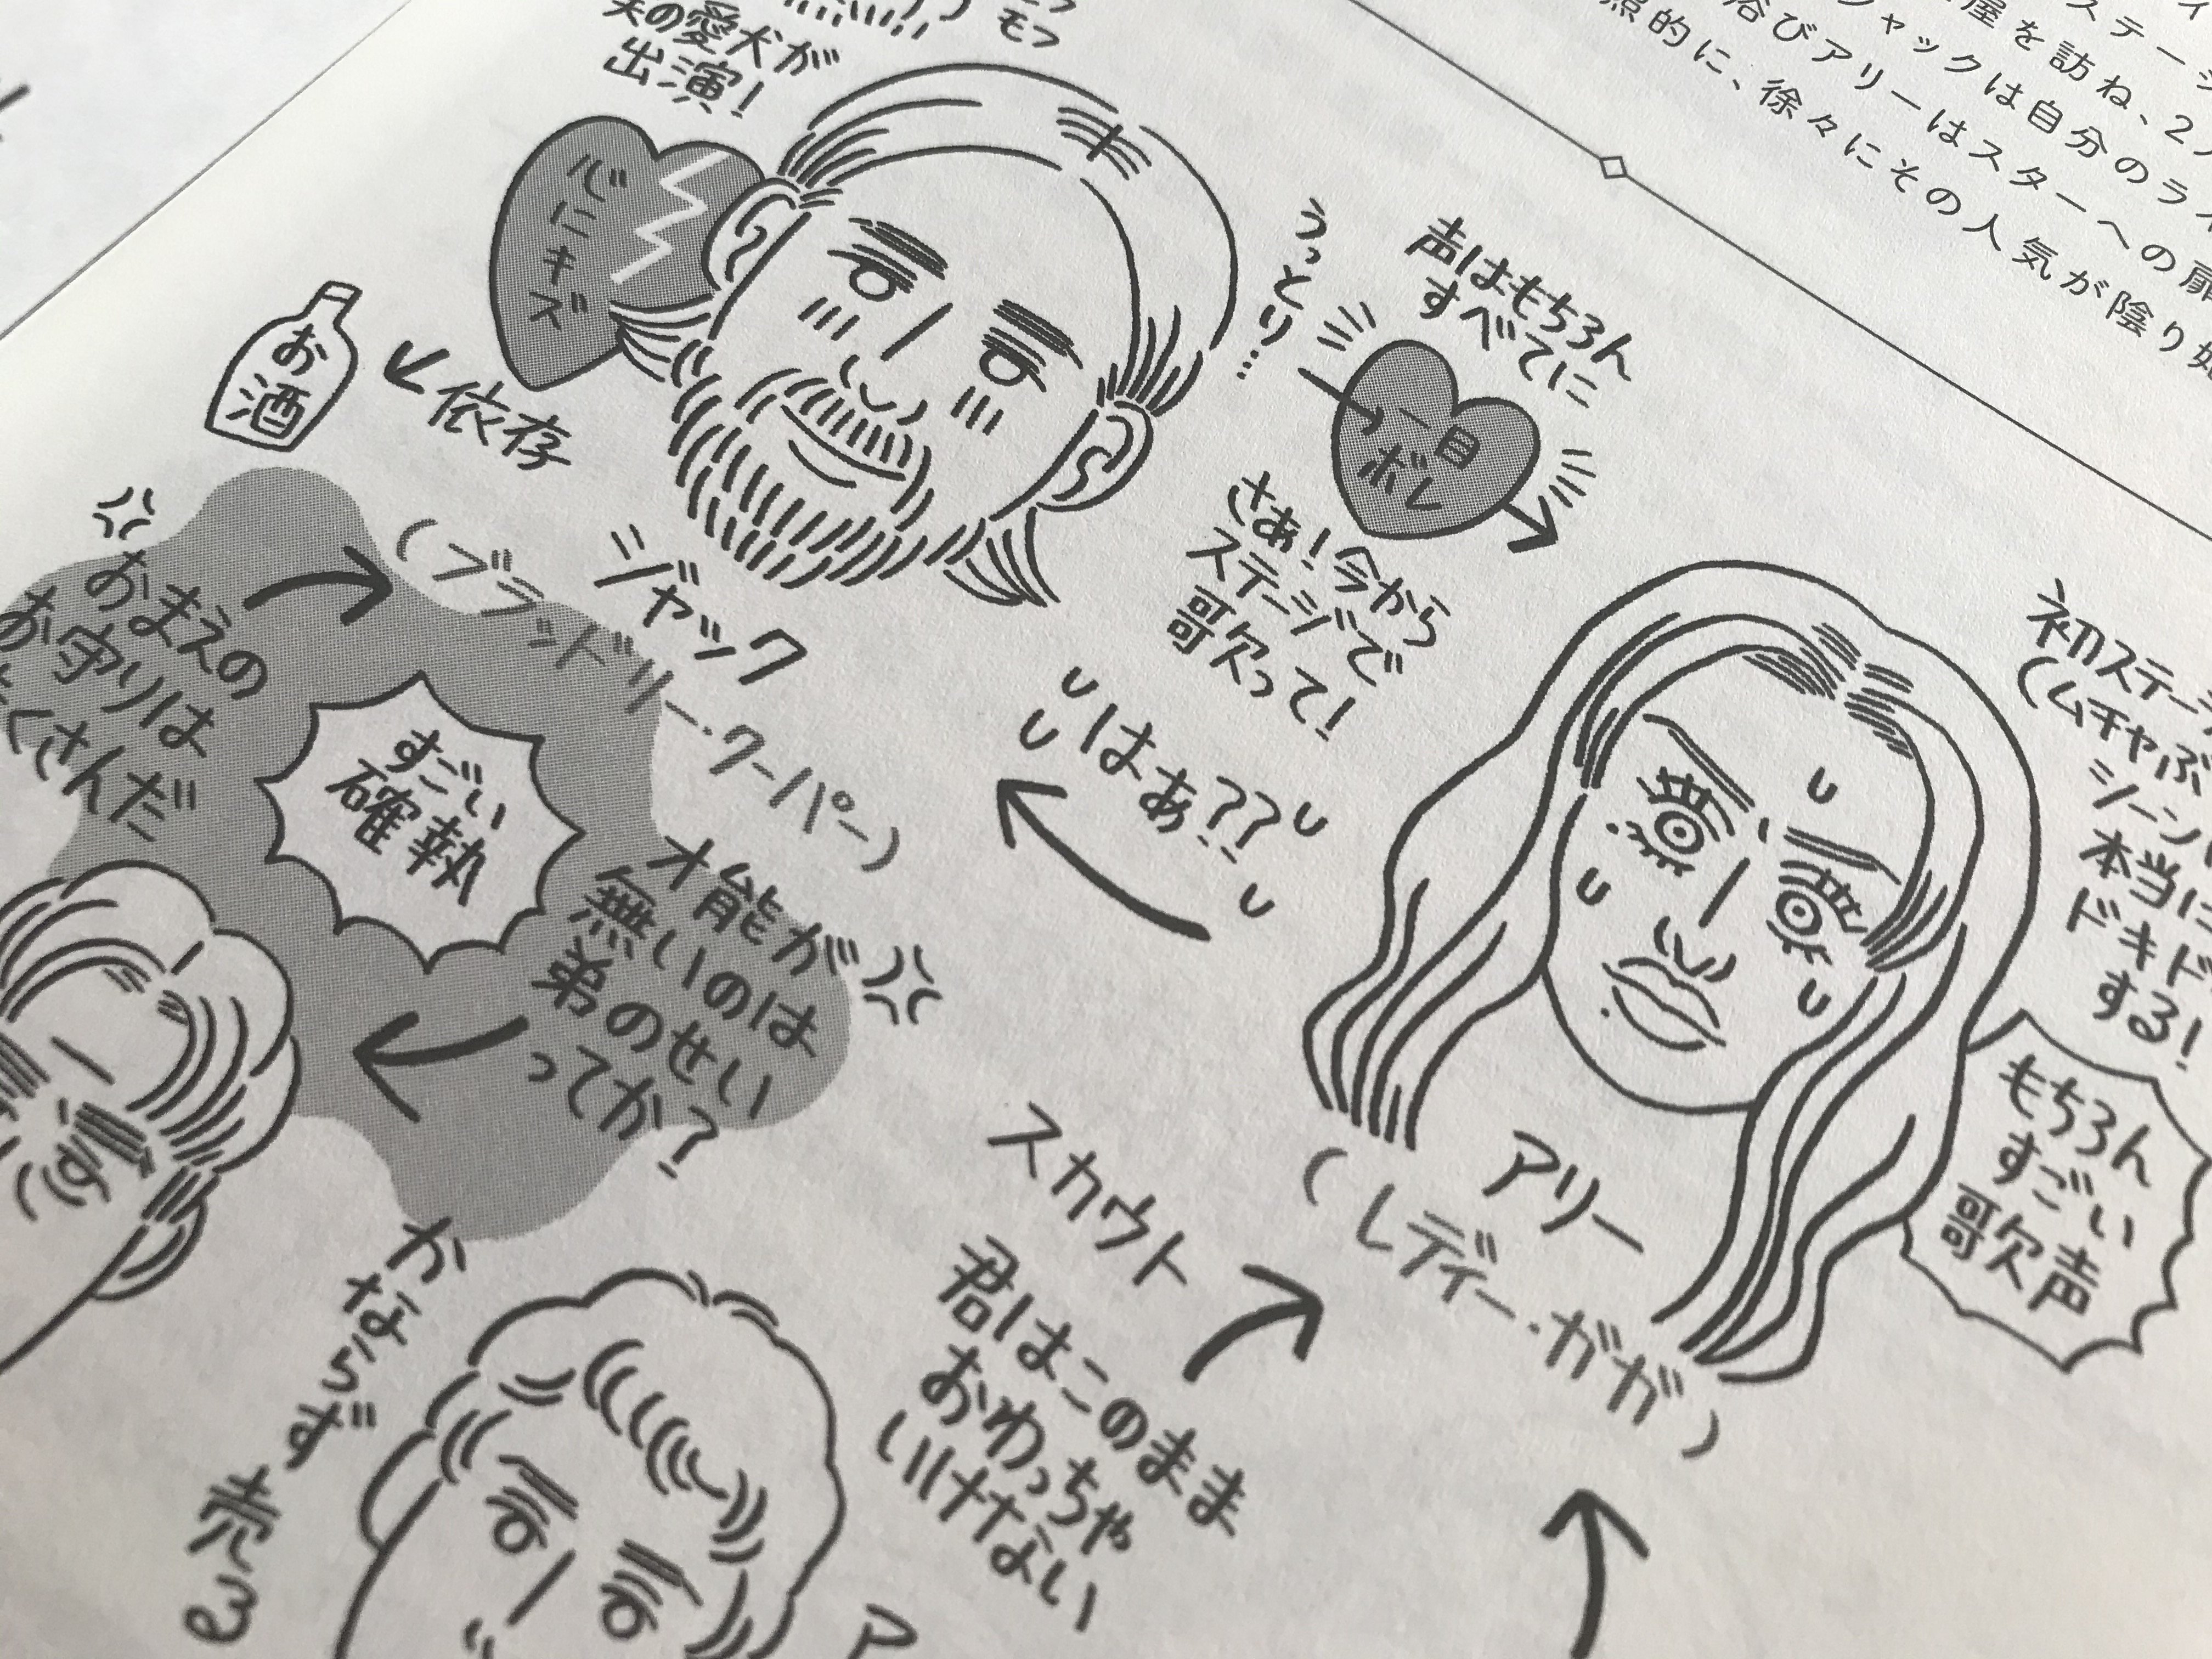 の愛犬が
出演!
モフ
心に
キズ
お
酒
依存
ジャック
(ブラッドリー・クーパー)
うっとり…
声はもちろん
すべてに
一目
ボレ
さあ!今から
ステージで
歌って!
はあ??
初ステージ
(ムチャぶ
シーン
本当に
ドキド
する!
もちろん
すごい
歌声
アリー
(レディー・ガガ)
おまえの
お守りは
たくさんだ
すごい
確執
才能が
無いのは
弟のせい
ってか?
スカウト
君はこのまま
おわっちゃ
いけない
かならず売る
ア
ステージ
屋を訪ね、2
ジャックは自分のライ
浴びアリーはスターへの扉
照的に、徐々にその人気が陰り始